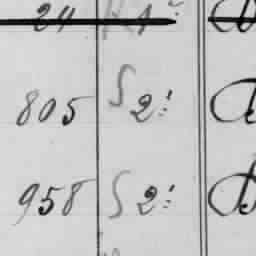 24
805 S 2:
958 S 2: